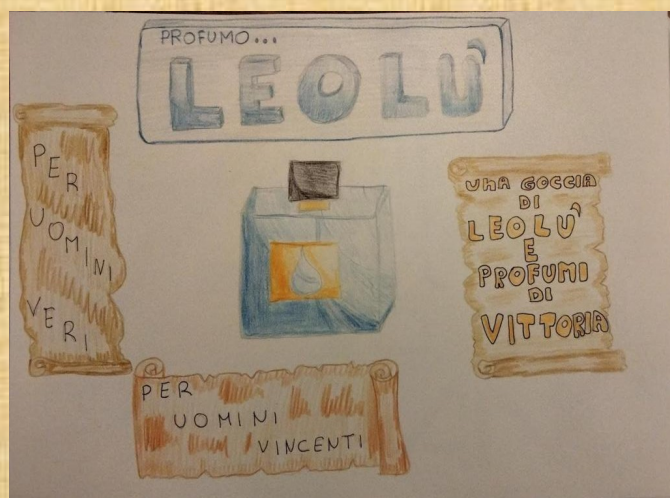 PROFUMO...
LEOLÙ
PER
UOMINI
VERI
UNA GOCCIA
DI
LEOLÙ
E
PROFUMI
DI
VITTORIA
PER
UOMINI
VINCENTI